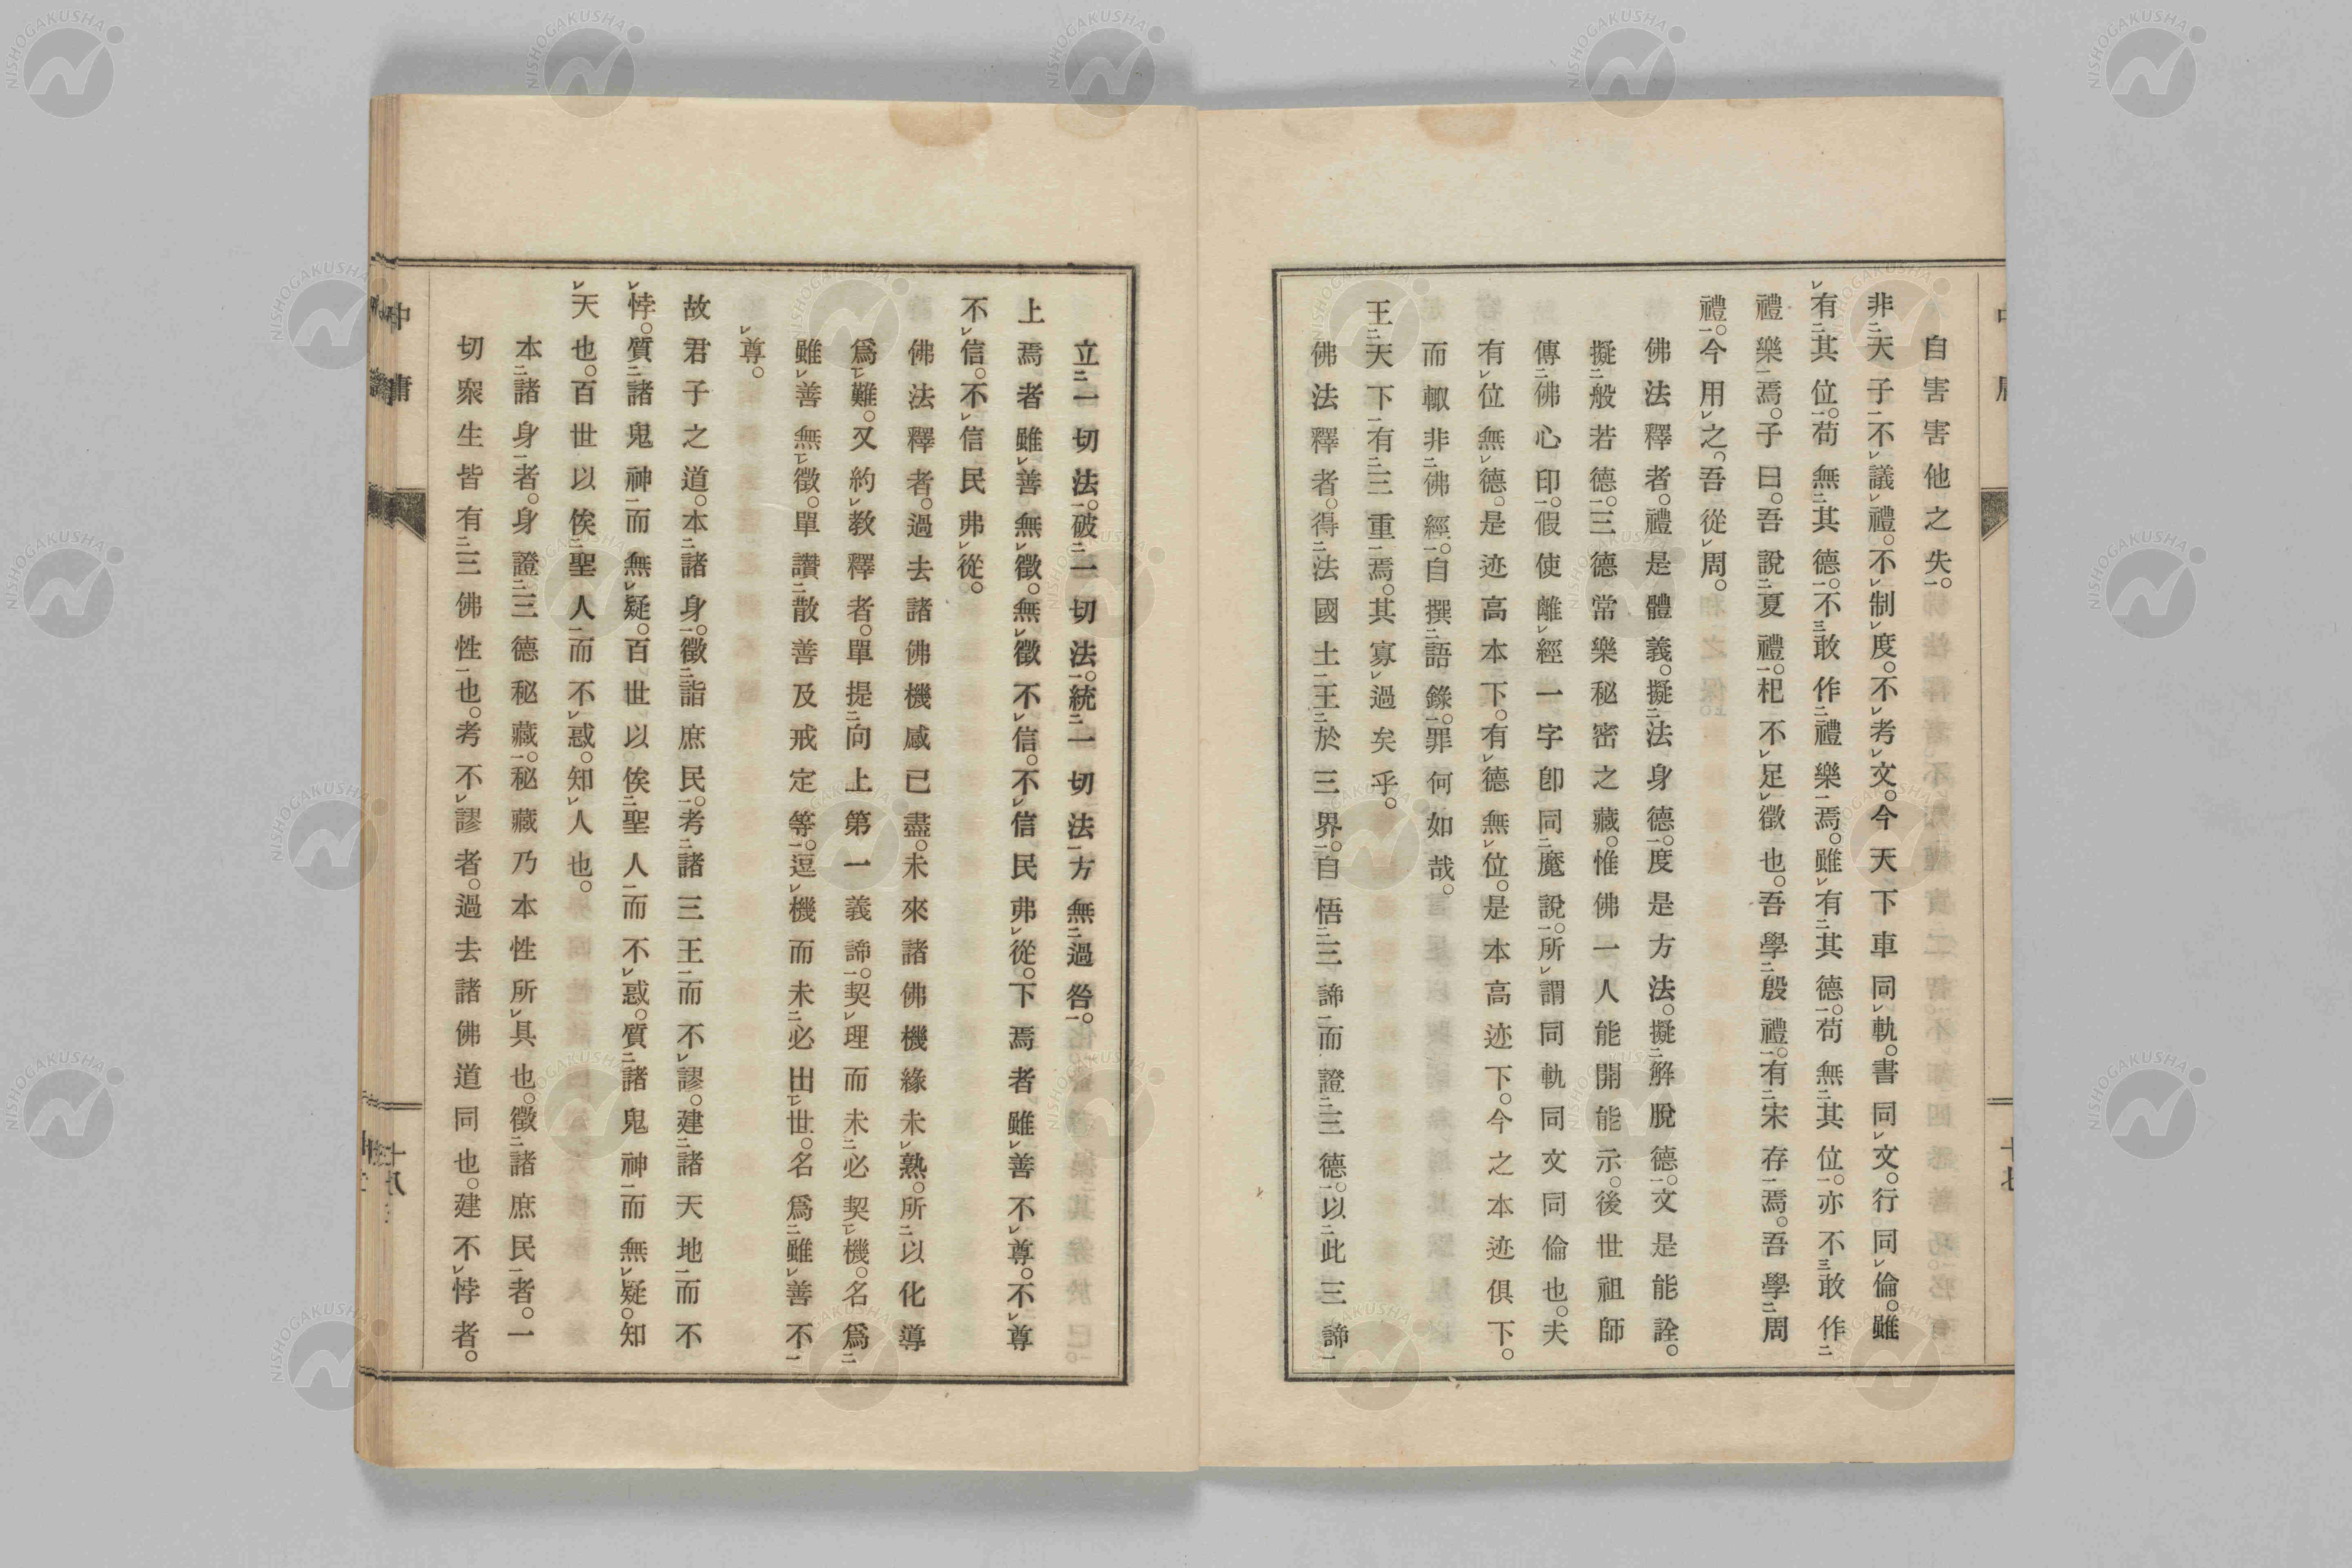 自害害他之失。
非天子不議禮。不制度。不考文。今天下車同軌。書同文。行同倫。雖
有其位。苟無其德。不敢作禮樂焉。雖有其德。苟無其位。亦不敢作
禮樂焉。子曰。吾說夏禮。杞不足徵也。吾學殷禮。有宋存焉。吾學周
禮。今用之。吾從周。
佛法釋者。禮是體義。擬法身德。度是方法。擬解脫德。文是能詮。
擬般若德。三德常樂秘密之藏。惟佛一人能開能示。後世祖師
傳佛心印。假使離經一字卽同魔說。所謂同軌同文同倫也。夫
有位無德。是迹高本下。有德無位。是本高迹下。今之本迹俱下。
而輙非佛經。自撰語錄。罪何如哉。
王天下有三重焉。其寡過矣乎。
佛法釋者。得法國土王於三界。自悟三諦而證三德。以此三諦
立一切法。破一切法。統一切法方無過咎。
上焉者雖善無徵。無徵不信。不信民弗從。下焉者雖善不尊。不尊
不信。不信民弗從。
佛法釋者。過去諸佛機感已盡。未來諸佛機緣未熟。所以化導
爲難。又約教釋者。單提向上第一義諦。契理而未必契機。名爲
雖善無徵。單讚散善及戒定等。逗機而未必出世。名爲雖善不
尊。
故君子之道。本諸身。徵諸庶民。考諸三王而不謬。建諸天地而不
悖。質諸鬼神而無疑。百世以俟聖人而不惑。質諸鬼神而無疑。知
天也。百世以俟聖人而不惑。知人也。
本諸身者。身證三德秘藏。秘藏乃本性所具也。徵諸庶民者。一
切衆生皆有三佛性也。考不謬者。過去諸佛道同也。建不悖者。
中庸
十八